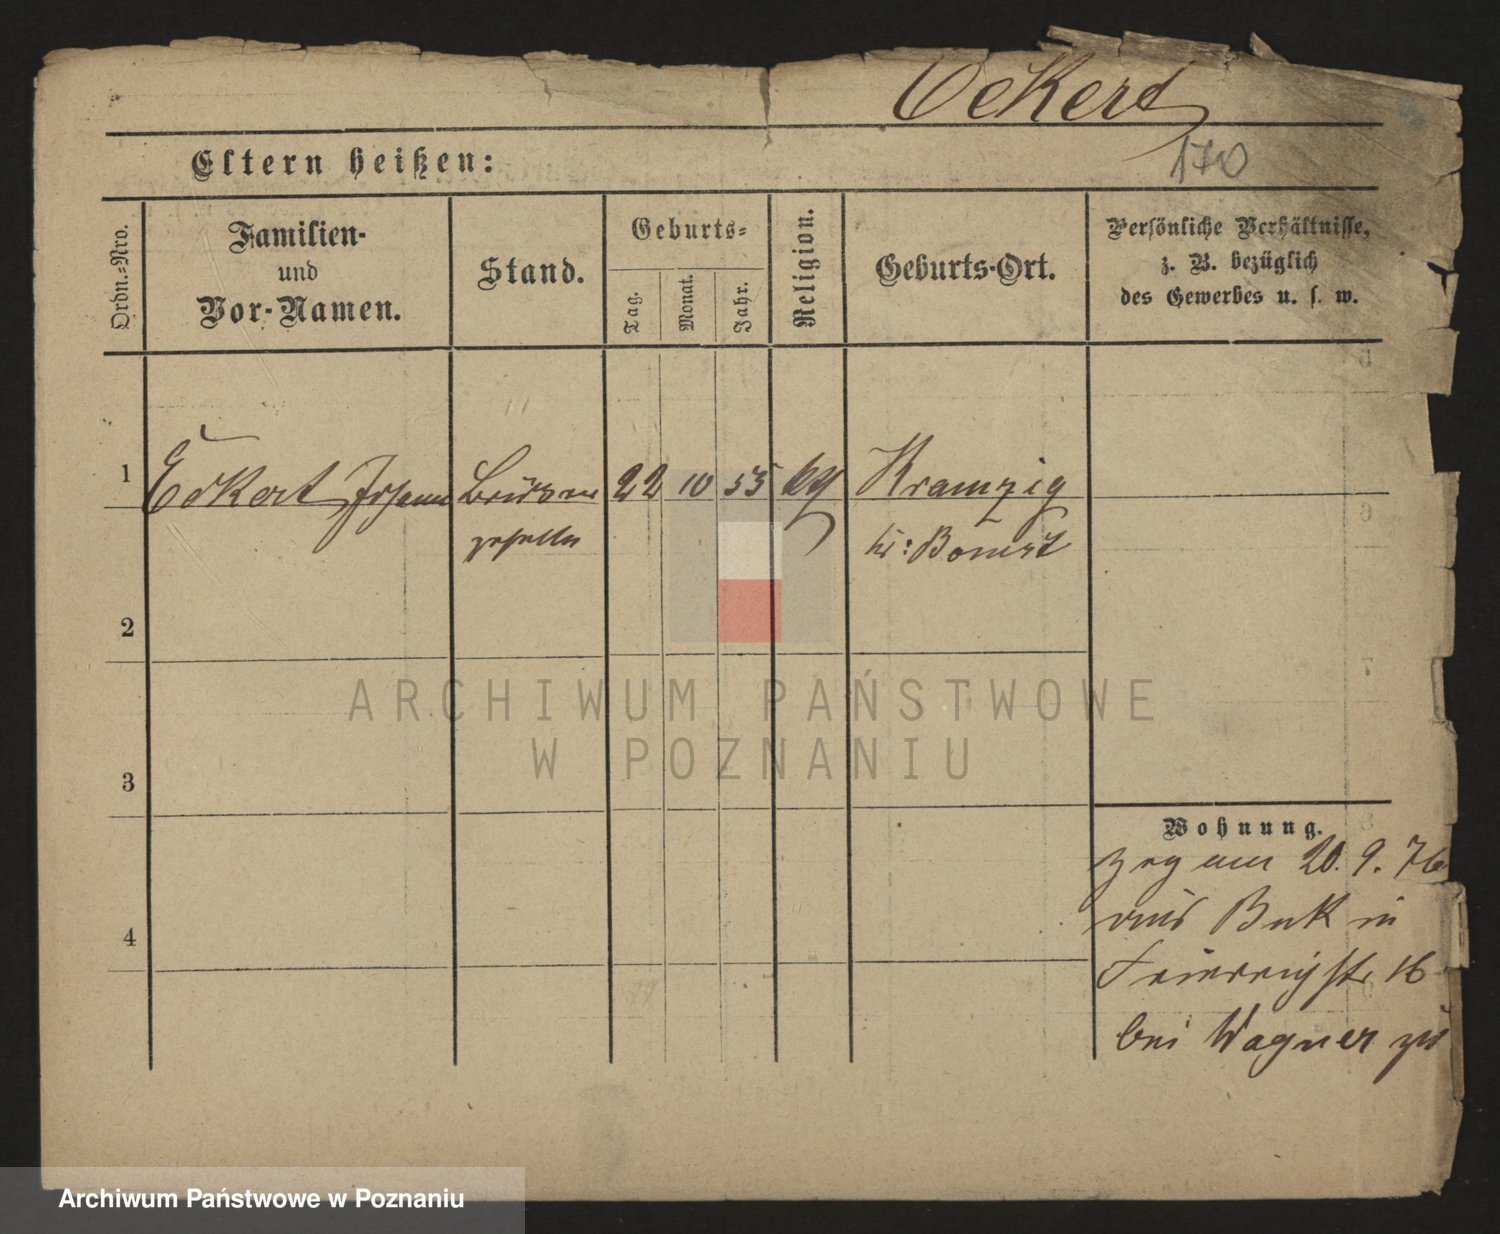 Eckert
170
Eltern heißen:
Ordn.-Nro.
Familien-
und
Vor-Namen.
Stand.
Geburts-
Tag.
Monat.
Jahr.
Religion.
Geburts-Ort.
Persönliche Verhältnisse,
z. B. bezüglich
des Gewerbes u. s. w.
1
Eckert Johann
22 10 53
Kramzig
geselle
Kr: Bomst
2
ARCHIWUM PAŃSTWOWE
W POZNANIU
3
Wohnung.
zog am 20. 9. 76
aus Buk in
4
Friedrichstr 16
bei Wagner zu
Archiwum Państwowe w Poznaniu